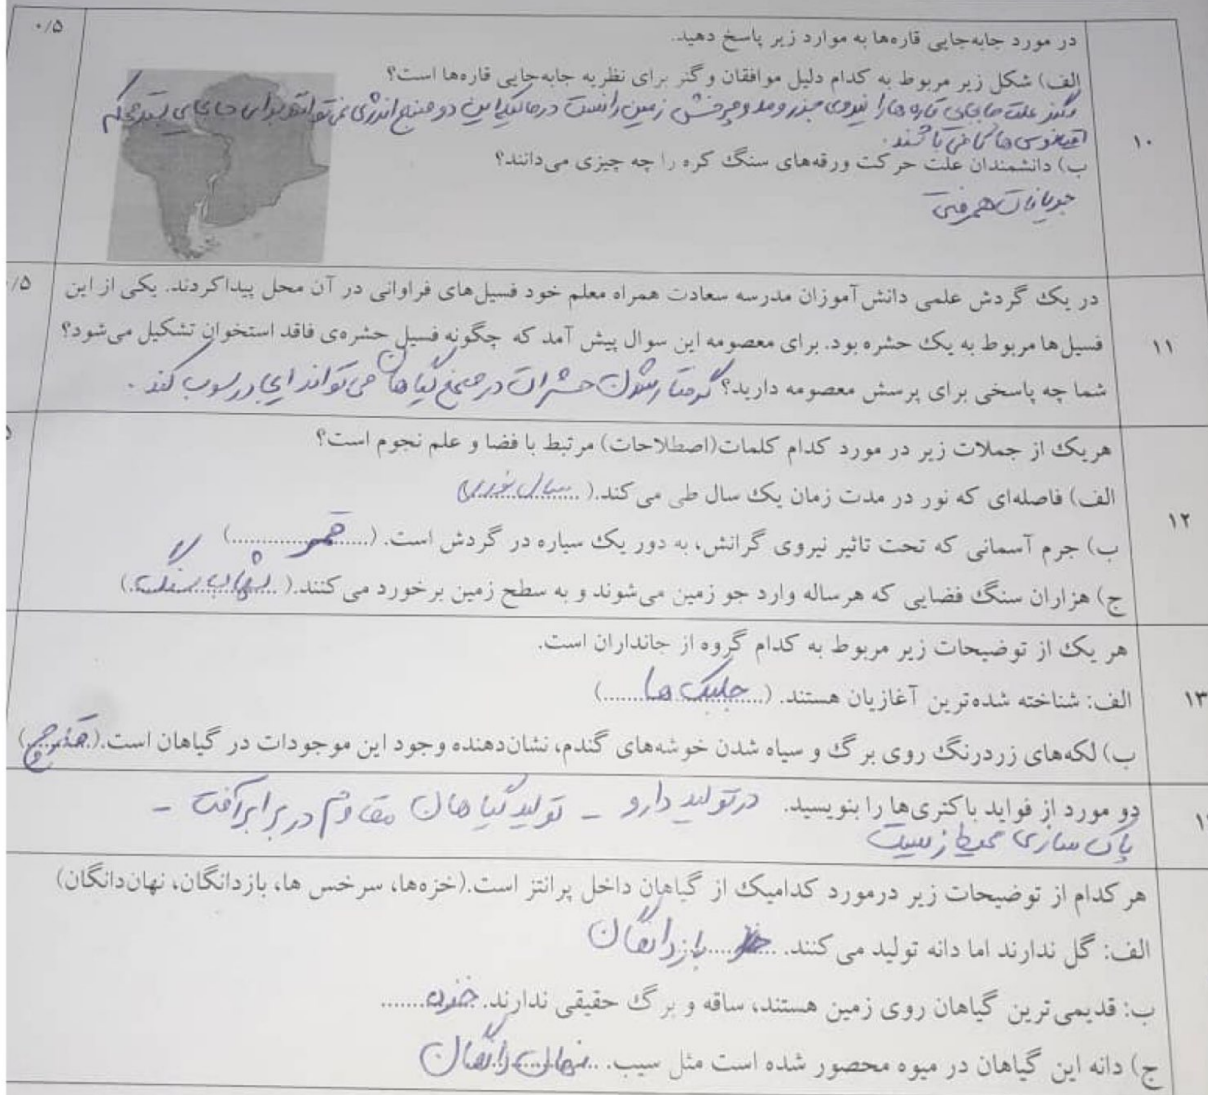 ۰/۵
در مورد جابه‌جایی قاره‌ها به موارد زیر پاسخ دهید.
الف) شکل زیر مربوط به کدام دلیل موافقان وگنر برای نظریه جابه‌جایی قاره‌ها است؟
وگنر علت جابجایی قاره ها را نیروی جزر و مد و چرخش زمین دانست درحالیکه این دو منبع انرژی نمی تواند برای جابجایی بستر محکم
اقیانوس ها کافی باشند.
۱۰
ب) دانشمندان علت حرکت ورقه‌های سنگ کره را چه چیزی می‌دانند؟
جریانات همرفتی
در یک گردش علمی دانش‌آموزان مدرسه سعادت همراه معلم خود فسیل‌های فراوانی در آن محل پیداکردند. یکی از این
/۵
۱۱
فسیل‌ها مربوط به یک حشره بود. برای معصومه این سوال پیش آمد که چگونه فسیل حشره‌ی فاقد استخوان تشکیل می‌شود؟
شما چه پاسخی برای پرسش معصومه دارید؟ گرفتار شدن حشرات در صمغ گیاهان می تواند ایجاد رسوب کند.
هریک از جملات زیر در مورد کدام کلمات(اصطلاحات) مرتبط با فضا و علم نجوم است؟
الف) فاصله‌ای که نور در مدت زمان یک سال طی می‌کند.( سال نوری
۱۲
ب) جرم آسمانی که تحت تاثیر نیروی گرانش، به دور یک سیاره در گردش است. (.....قمر.....)
ج) هزاران سنگ فضایی که هرساله وارد جو زمین می‌شوند و به سطح زمین برخورد می‌کنند.( شهاب سنگ )
هر یک از توضیحات زیر مربوط به کدام گروه از جانداران است.
۱۳
الف: شناخته شده‌ترین آغازیان هستند. (.....جلبک ها.....)
ب) لکه‌های زردرنگ روی برگ و سیاه شدن خوشه‌های گندم، نشان‌دهنده وجود این موجودات در گیاهان است.( قارچ )
دو مورد از فواید باکتری‌ها را بنویسید. در تولید دارو - تولید گیاهان مقاوم در برابر آفت -
پاک سازی محیط زیست
هر کدام از توضیحات زیر درمورد کدامیک از گیاهان داخل پرانتز است.(خزه‌ها، سرخس ها، بازدانگان، نهان‌دانگان)
الف: گل ندارند اما دانه تولید می‌کنند. ..... بازدانگان
ب: قدیمی‌ترین گیاهان روی زمین هستند، ساقه و برگ حقیقی ندارند. خزه.......
ج) دانه این گیاهان در میوه محصور شده است مثل سیب. ..نهان دانگان